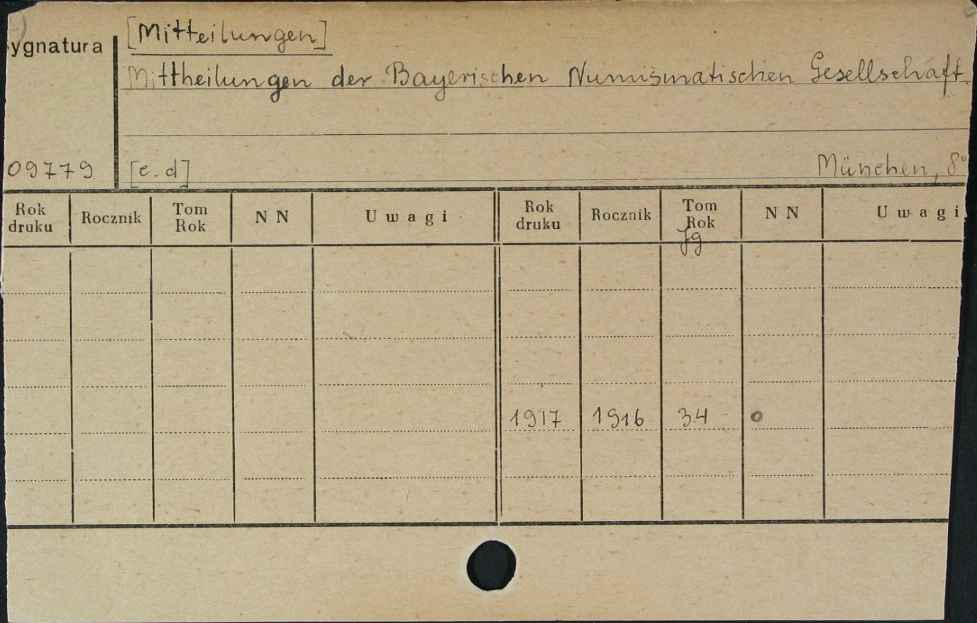 [Mitteilungen]
ygnatura
Mittheilungen der Bayerischen Numismatischen Gesellschaft
09779 [c.d] München, 8°
Rok druku Rocznik Tom Rok N N Uwagi Rok druku Rocznik Tom Rok N N Uwagi
jg
1917 1916 34 o